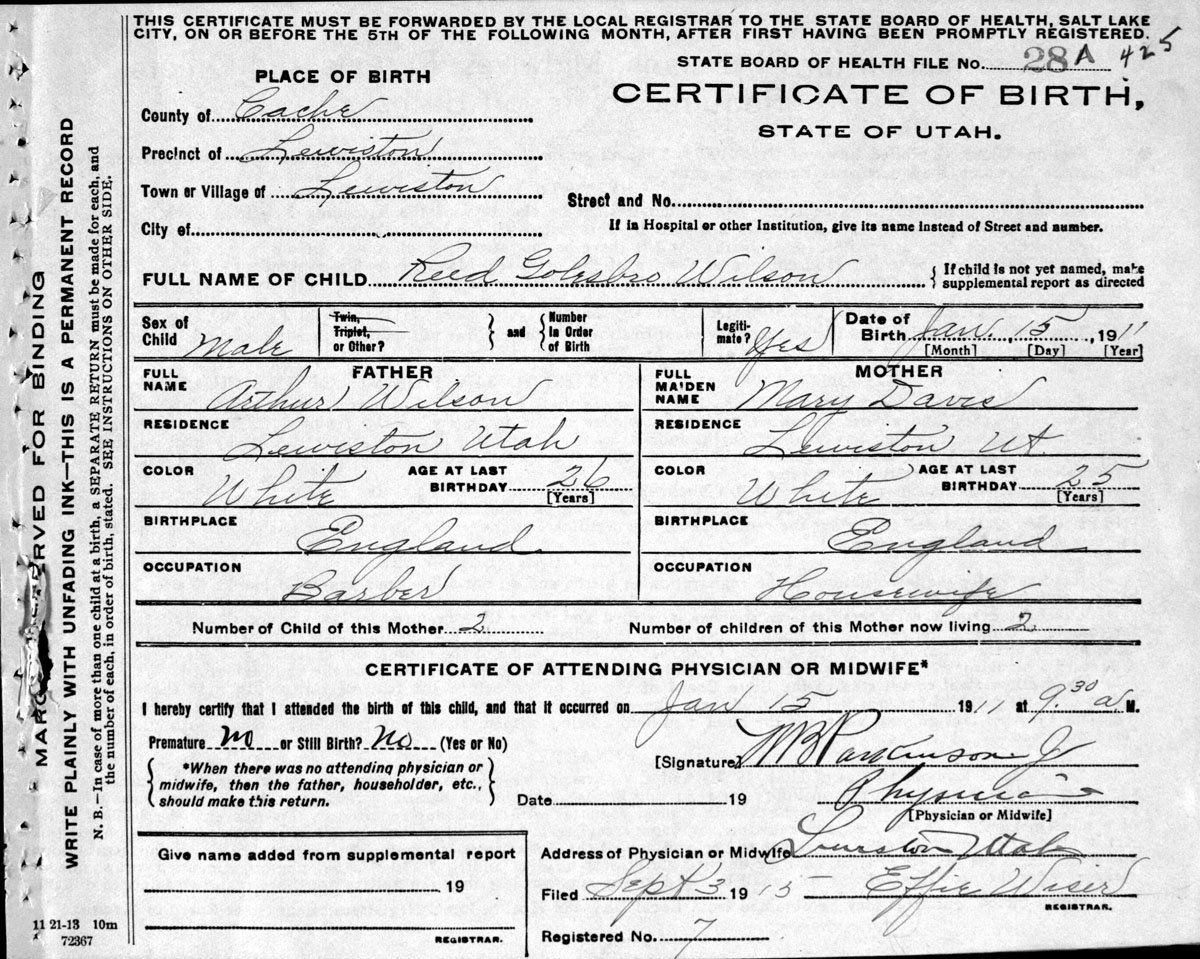 THIS CERTIFICATE MUST BE FORWARDED BY THE LOCAL REGISTRAR TO THE STATE BOARD OF HEALTH, SALT LAKE
CITY, ON OR BEFORE THE 5TH OF THE FOLLOWING MONTH, AFTER FIRST HAVING BEEN PROMPTLY REGISTERED.
STATE BOARD OF HEALTH FILE No. 28A 425
PLACE OF BIRTH
CERTIFICATE OF BIRTH,
STATE OF UTAH.
County of Cache
Precinct of Lewiston
Town or Village of Lewiston
Street and No.
City of
If in Hospital or other Institution, give its name instead of Street and number.
FULL NAME OF CHILD Reed Golesbro Wilson { If child is not yet named, make
supplemental report as directed
Sex of Child Male
Twin, Triplet, or Other? } and { Number in Order of Birth
Legitimate? Yes
Date of Birth Jan. 15, 1911
[Month] [Day] [Year]
FATHER
FULL NAME Arthur Wilson
RESIDENCE Lewiston Utah
COLOR White AGE AT LAST BIRTHDAY 26
[Years]
BIRTHPLACE England
OCCUPATION Barber
MOTHER
FULL MAIDEN NAME Mary Davis
RESIDENCE Lewiston Ut.
COLOR White AGE AT LAST BIRTHDAY 25
[Years]
BIRTHPLACE England
OCCUPATION Housewife
Number of Child of this Mother 2 Number of children of this Mother now living 2
CERTIFICATE OF ATTENDING PHYSICIAN OR MIDWIFE*
I hereby certify that I attended the birth of this child, and that it occurred on Jan 15 1911 at 9.30 a. M.
Premature No or Still Birth? No (Yes or No)
[Signature] M B Parkinson Jr
{ *When there was no attending physician or
midwife, then the father, householder, etc.,
should make this return. }
Date 19
Physician
[Physician or Midwife]
Give name added from supplemental report
19
REGISTRAR.
Address of Physician or Midwife Lewiston Utah
Filed Sept 3 1915 Effie Wiser
REGISTRAR.
Registered No. 7
11 21-13 10m
72367
RESERVED FOR BINDING
WRITE PLAINLY WITH UNFADING INK—THIS IS A PERMANENT RECORD
N. B.—In case of more than one child at a birth, a SEPARATE RETURN must be made for each, and
the number of each, in order of birth, stated. SEE INSTRUCTIONS ON OTHER SIDE.